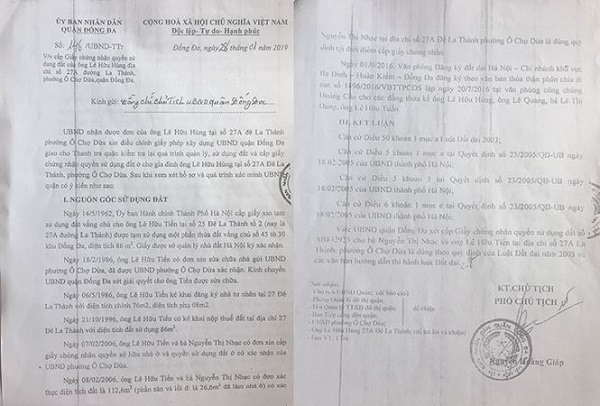 ỦY BAN NHÂN DÂN
QUẬN ĐỐNG ĐA
CỘNG HOÀ XÃ HỘI CHỦ NGHĨA VIỆT NAM
Độc lập- Tự do- Hạnh phúc
Số: 146 /UBND-TTr
Đống Đa, ngày 28 tháng 01 năm 2019
V/v cấp Giấy chứng nhận quyền sử
dụng đất của ông Lê Hữu Hùng địa
chỉ số 27A đường La Thành,
phường Ô Chợ Dừa, quận Đống Đa.
Kính gửi: Đồng chí Chủ Tịch UBND quận Đống Đa.
UBND nhận được đơn của ông Lê Hữu Hùng tại số 27A Đê La Thành
phường Ô Chợ Dừa xin điều chỉnh giấy phép xây dựng UBND quận Đống Đa
giao cho Thanh tra quận kiểm tra lại quá trình quản lý, sử dụng đất và cấp giấy
chứng nhận quyền sử dụng đất ở cho gia đình ông Lê Hữu Hùng tại số 27A Đê La
Thành, phường Ô Chợ Dừa. Sau khi xem xét hồ sơ và quá trình xác minh UBND
quận có ý kiến như sau:
I. NGUỒN GỐC SỬ DỤNG ĐẤT
Ngày 14/5/1962, Ủy ban Hành chính Thành Phố Hà Nội cấp giấy xin tạm
sử dụng đất vắng chủ cho ông Lê Hữu Tiến tại số 25 Đê La Thành số 2 (nay là
27A đường La Thành) được tạm sử dụng một phần thửa đất vắng chủ số 45 tờ 30
khu Đống Đa, diện tích 86 m². Giấy được sở quản lý nhà đất Hà Nội ký xác nhận.
Ngày 18/2/1986, ông Lê Hữu Tiến có đơn xin sửa chữa nhà gửi UBND
phường Ô Chợ Dừa, đã được UBND phường Ô Chợ Dừa xác nhận. Kính chuyển
UBND quận Đống Đa xét giải quyết cho ông Tiến được sửa chữa.
Ngày 06/5/1986, ông Lê Hữu Tiến kê khai đăng ký nhà tư nhân tại 27 Đê
La Thành với diện tích chính 76m2, diện tích phụ 08m2.
Ngày 21/10/1996, ông Lê Hữu Tiến có kê khai nộp thuế đất tại địa chỉ 27
Đê La Thành với diện tích sử dụng 86m².
Ngày 07/02/2006, ông Lê Hữu Tiến và bà Nguyễn Thị Nhạc có đơn xin cấp
giấy chứng nhận quyền sở hữu nhà ở và quyền sử dụng đất ở có xác nhận của
UBND phường Ô Chợ Dừa.
Ngày 08/02/2006, ông Lê Hữu Tiến và bà Nguyễn Thị Nhạc có đơn xác
thực diện tích đất là 112,6m² (phần sân và lối đi là 26,6m² đã làm nhà ở) có xác
Nguyễn Thị Nhạc tại địa chỉ số 27A Đê La Thành phường Ô Chợ Dừa là đúng quy
định tại thời điểm cấp giấy chứng nhận.
Ngày 01/9/2016, Văn phòng Đăng ký đất đai Hà Nội - Chi nhánh khu vực
Ba Đình - Hoàn Kiếm - Đống Đa đăng ký theo văn bản thỏa thận phân chia di
sản số 1496/2016/VBTTPCDS lập ngày 20/7/2016 tại văn phòng công chứng
Hoàng Cầu cho các đồng thừa kế ông Lê Hữu Hùng, ông Lê Quảng, bà Lê Thị
Dung, ông Lê Hữu Tuấn
III. KẾT LUẬN
Căn cứ Điều 50 khoản 1 mục a Luật Đất đai 2003;
Căn cứ Điều 5 khoản 1 mục a tại Quyết định số 23/2005/QĐ-UB ngày
18/02/2005 của UBND thành phố Hà Nội;
Căn cứ Điều 5 khoản 5 tại Quyết định số 23/2005/QĐ-UB ngày
18/02/2005 của UBND thành phố Hà Nội;
Căn cứ Điều 6 khoản 1 mục e tại Quyết định số 23/2005/QĐ-UB ngày
18/02/2005 của UBND thành phố Hà Nội.
Việc UBND quận Đống Đa xét cấp Giấy chứng nhận quyền sử dụng đất số
cho bà Nguyễn Thị Nhạc và ông Lê Hữu Tiến tại địa chỉ số 27A La
Thành, phường Ô Chợ Dừa là đúng theo quy định của Luật Đất đai năm 2003 và
các văn bản hướng dẫn thi hành luật Đất đai.
Nơi nhận:
KT.CHỦ TỊCH
PHÓ CHỦ TỊCH
Nguyễn Hoàng Giáp